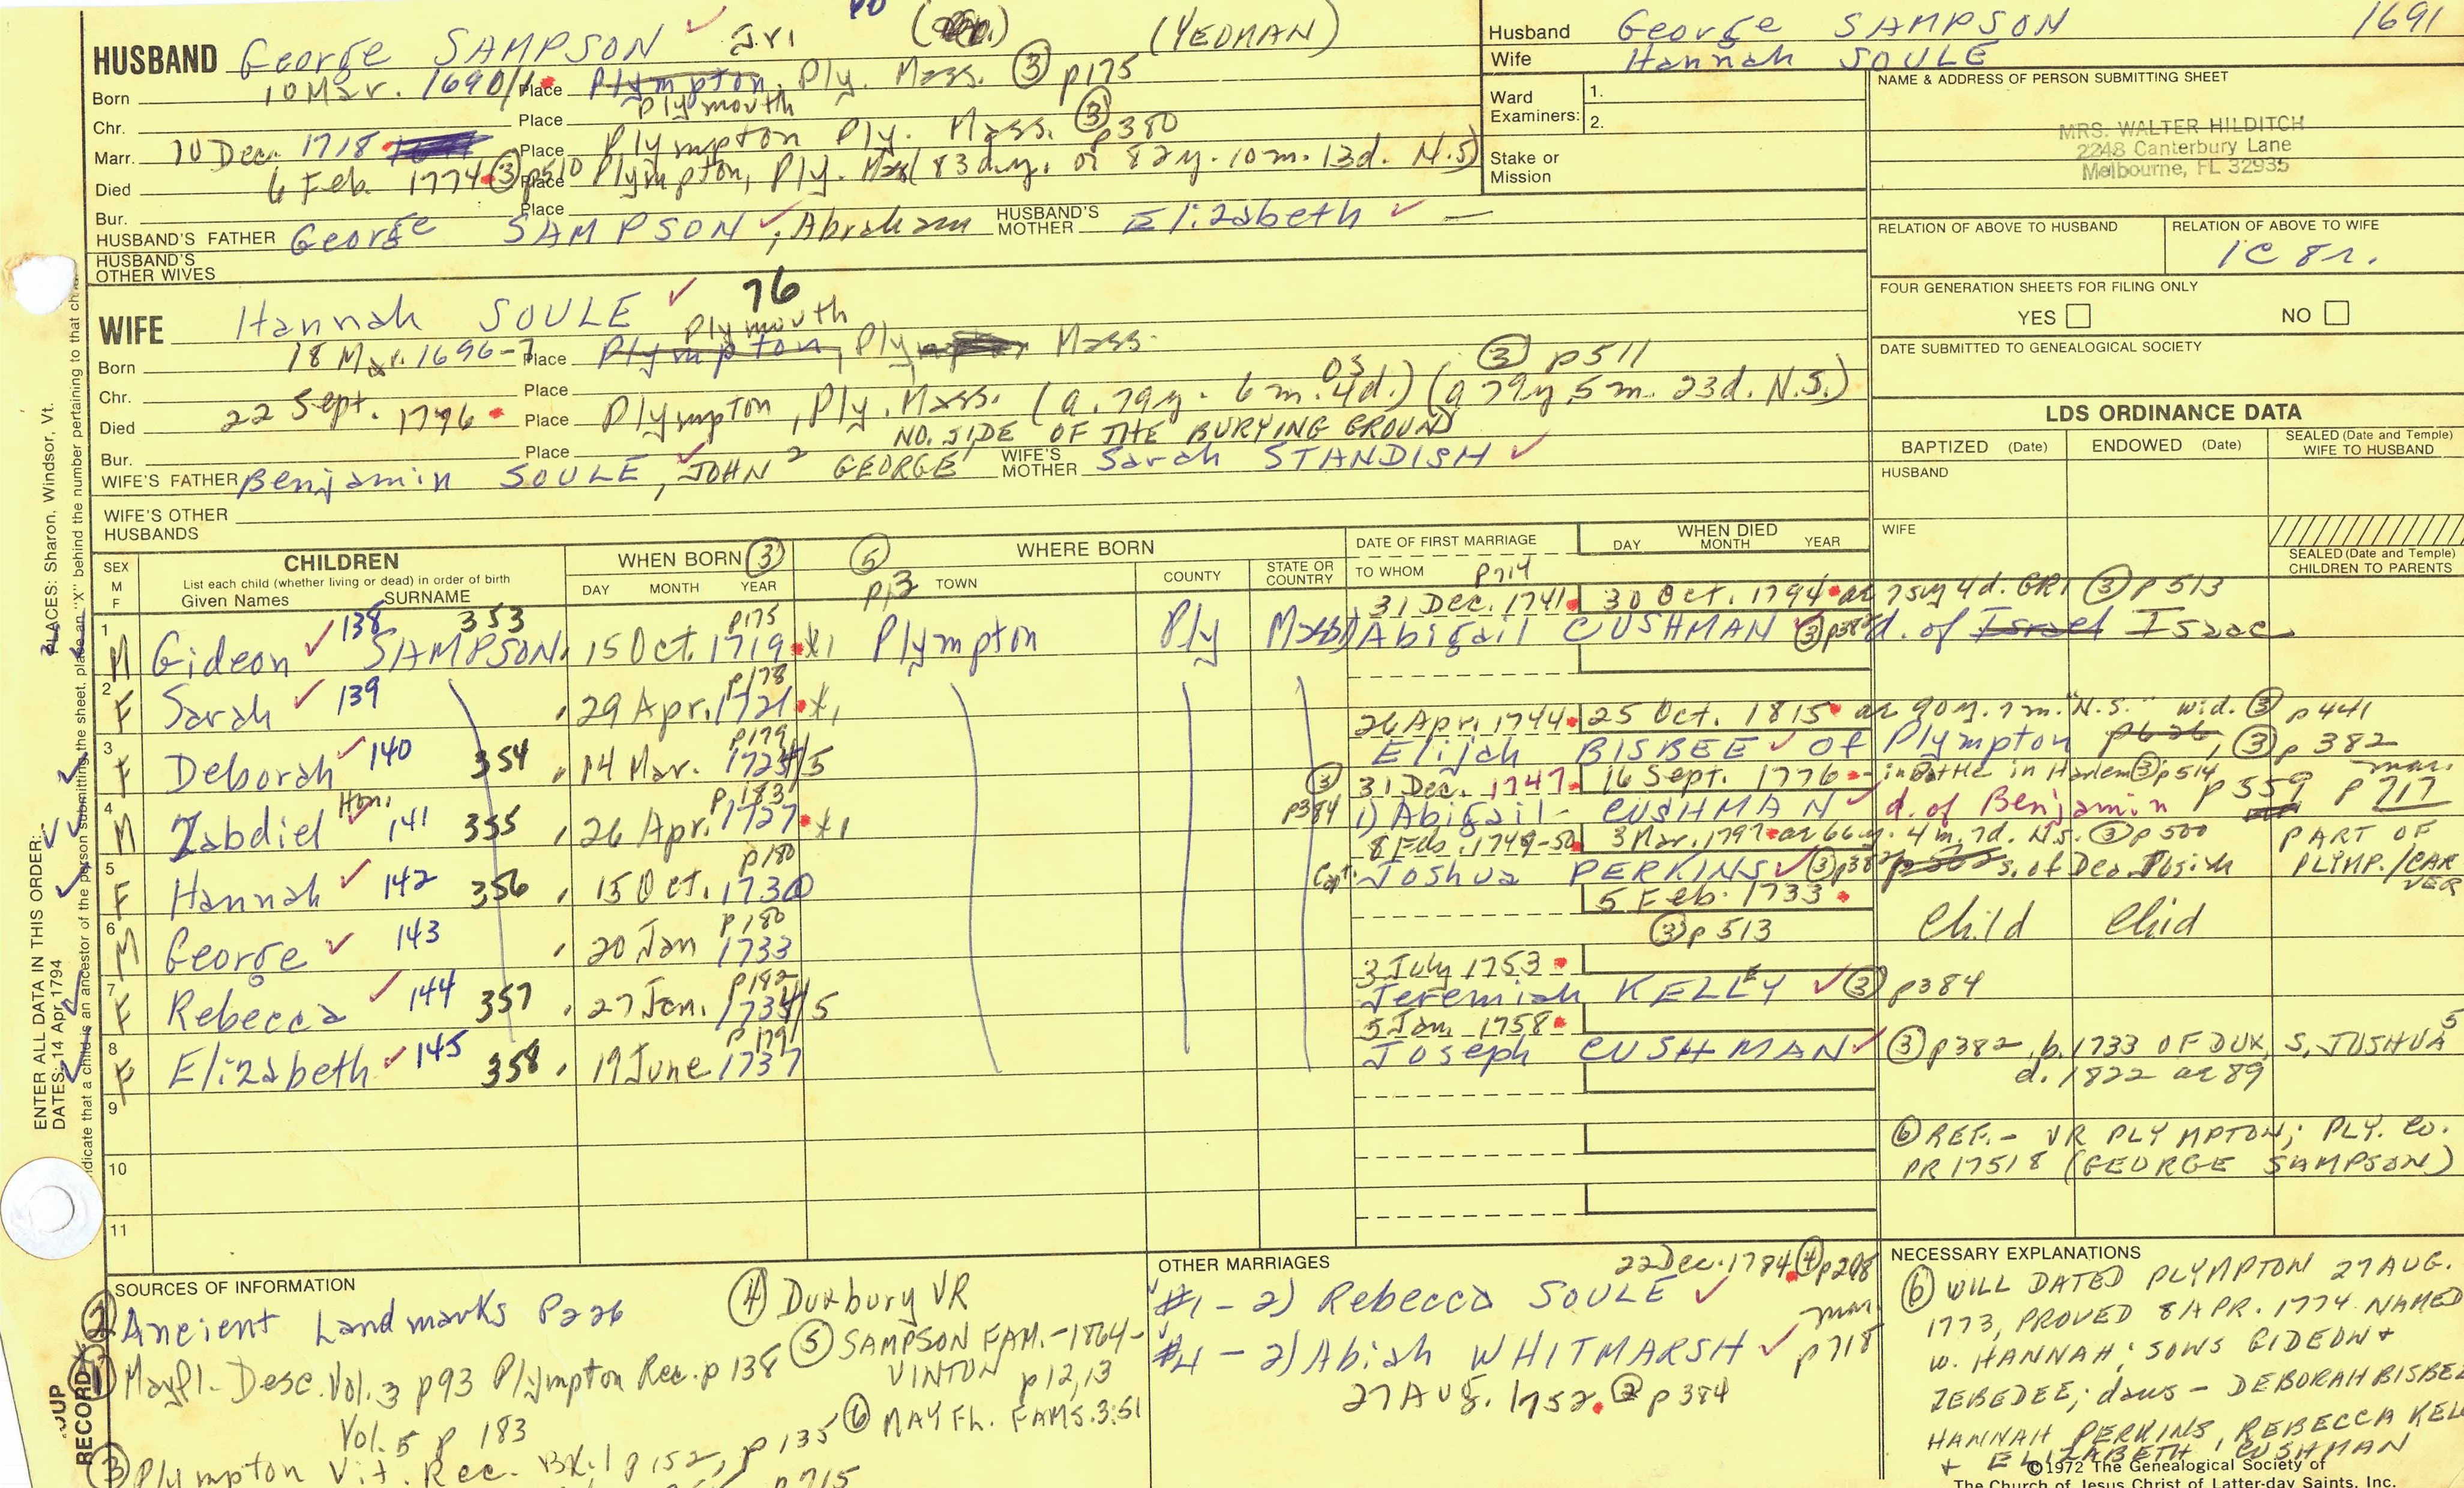 HUSBAND George SAMPSON Jr. (YEOMAN)
Born 10 Mar. 1690/1 Place Plympton, Ply. Mass. ③ p175
Plymouth
Chr. Place
Marr. 10 Dec. 1718 Place Plympton Ply. Mass. ③ p380
Died 6 Feb. 1774 ③ p510 Place Plympton, Ply. Mass (83d.y. or 82y. 10m. 13d. N.S)
Bur. Place
HUSBAND'S FATHER George SAMPSON, Abraham HUSBAND'S MOTHER Elizabeth —
HUSBAND'S OTHER WIVES
Husband George SAMPSON 1691
Wife Hannah SOULE
Ward Examiners: 1.
2.
Stake or Mission
NAME & ADDRESS OF PERSON SUBMITTING SHEET
MRS. WALTER HILDITCH
2248 Canterbury Lane
Melbourne, FL 32935
RELATION OF ABOVE TO HUSBAND
RELATION OF ABOVE TO WIFE
1C 8r.
FOUR GENERATION SHEETS FOR FILING ONLY
YES NO
DATE SUBMITTED TO GENEALOGICAL SOCIETY
WIFE Hannah SOULE 76
Plymouth
Born 18 Mar. 1696-7 Place Plympton, Ply Mass.
③ p511
Chr. Place
Died 22 Sept. 1776 Place Plympton, Ply. Mass. (a. 79y. 6m. 4d.) (a 79y 5m. 23d. N.S.)
03
NO. SIDE OF THE BURYING GROUND
Bur. Place
WIFE'S FATHER Benjamin SOULE, JOHN 2 GEORGE WIFE'S MOTHER Sarah STANDISH
WIFE'S OTHER HUSBANDS
LDS ORDINANCE DATA
BAPTIZED (Date) ENDOWED (Date) SEALED (Date and Temple) WIFE TO HUSBAND
HUSBAND
WIFE
SEALED (Date and Temple) CHILDREN TO PARENTS
SEX M F
CHILDREN
List each child (whether living or dead) in order of birth
Given Names SURNAME
WHEN BORN ③
DAY MONTH YEAR
⑤ p13 WHERE BORN
TOWN COUNTY STATE OR COUNTRY
DATE OF FIRST MARRIAGE
TO WHOM p714
WHEN DIED
DAY MONTH YEAR
31 Dec. 1741 30 Oct. 1794 ae 75y 4d. GR1 ③ p 513
1 M Gideon 138 SAMPSON 353 15 Oct. 1719 p175 x1 Plympton Ply Mass 1) Abigail CUSHMAN ③ p382 d. of Israel Isaac
2 F Sarah 139 29 Apr. 1721 p178 x1
26 Apr. 1744 25 Oct. 1815 ae 90y. 7m. "N.S." wid. ③ p441
3 F Deborah 140 354 14 Mar. 1724/5 p179 Elijah BISBEE of Plympton p626, ③ p 382
③ 31 Dec. 1747 16 Sept. 1776 in Battle in Harlem ③ p514 mar.
4 M Zabdiel Hon. 141 355 26 Apr. 1727 p183 x1 p384 1) Abigail CUSHMAN d. of Benjamin p 559 p 717
8 Feb. 1749-50 3 Mar. 1797 ae 66y. 4m, 7d. N.S. ③ p 500 PART OF
5 F Hannah 142 356 15 Oct. 1730 p180 Capt. Joshua PERKINS ③ p382 s. of Dea. Josiah PLIMP./CARVER
6 M George 143 20 Jan 1733 p180 5 Feb. 1733 Child Child
③ p 513
3 July 1753
7 F Rebecca 144 357 27 Jan. 1734/5 p182 Jeremiah KELLEY ③ p384
5 Jan. 1758
8 F Elizabeth 145 358 19 June 1737 p179 Joseph CUSHMAN ③ p382, b. 1733 OF DUX, S. JOSHUA 5
d. 1822 ae 89
9
10
11
⑥ REF. - VR PLYMPTON; PLY. CO.
PR 17518 (GEORGE SAMPSON)
SOURCES OF INFORMATION
② Ancient Landmarks P226
① Mayfl. Desc. Vol. 3 p93 Plympton Rec. p 138
Vol. 5 p 183
③ Plympton Vit. Rec. BK. 1 p152, p 135
p 715
④ Duxbury VR
⑤ SAMPSON FAM. - 1864 -
VINTON p 12, 13
⑥ MAYFL. FAMS. 3:51
OTHER MARRIAGES
22 Dec. 1784 ④ p208
#1 - 2) Rebecca SOULE
#4 - 2) Abiah WHITMARSH mar. p718
27 AUG. 1752. ② p384
NECESSARY EXPLANATIONS
⑥ WILL DATED PLYMPTON 27 AUG.
1773, PROVED 8 APR. 1774 NAMED
W. HANNAH; SONS GIDEON +
ZEBEDEE; daus - DEBORAH BISBEE
HANNAH PERKINS, REBECCA KEL
+ ELIZABETH CUSHMAN
©1972 The Genealogical Society of
The Church of Jesus Christ of Latter-day Saints, Inc.
ENTER ALL DATA IN THIS ORDER:
PLACES: Sharon, Windsor, Vt.
DATES: 14 Apr 1794
indicate that a child is an ancestor of the person submitting the sheet, place an "X" behind the number pertaining to that child
RECORD